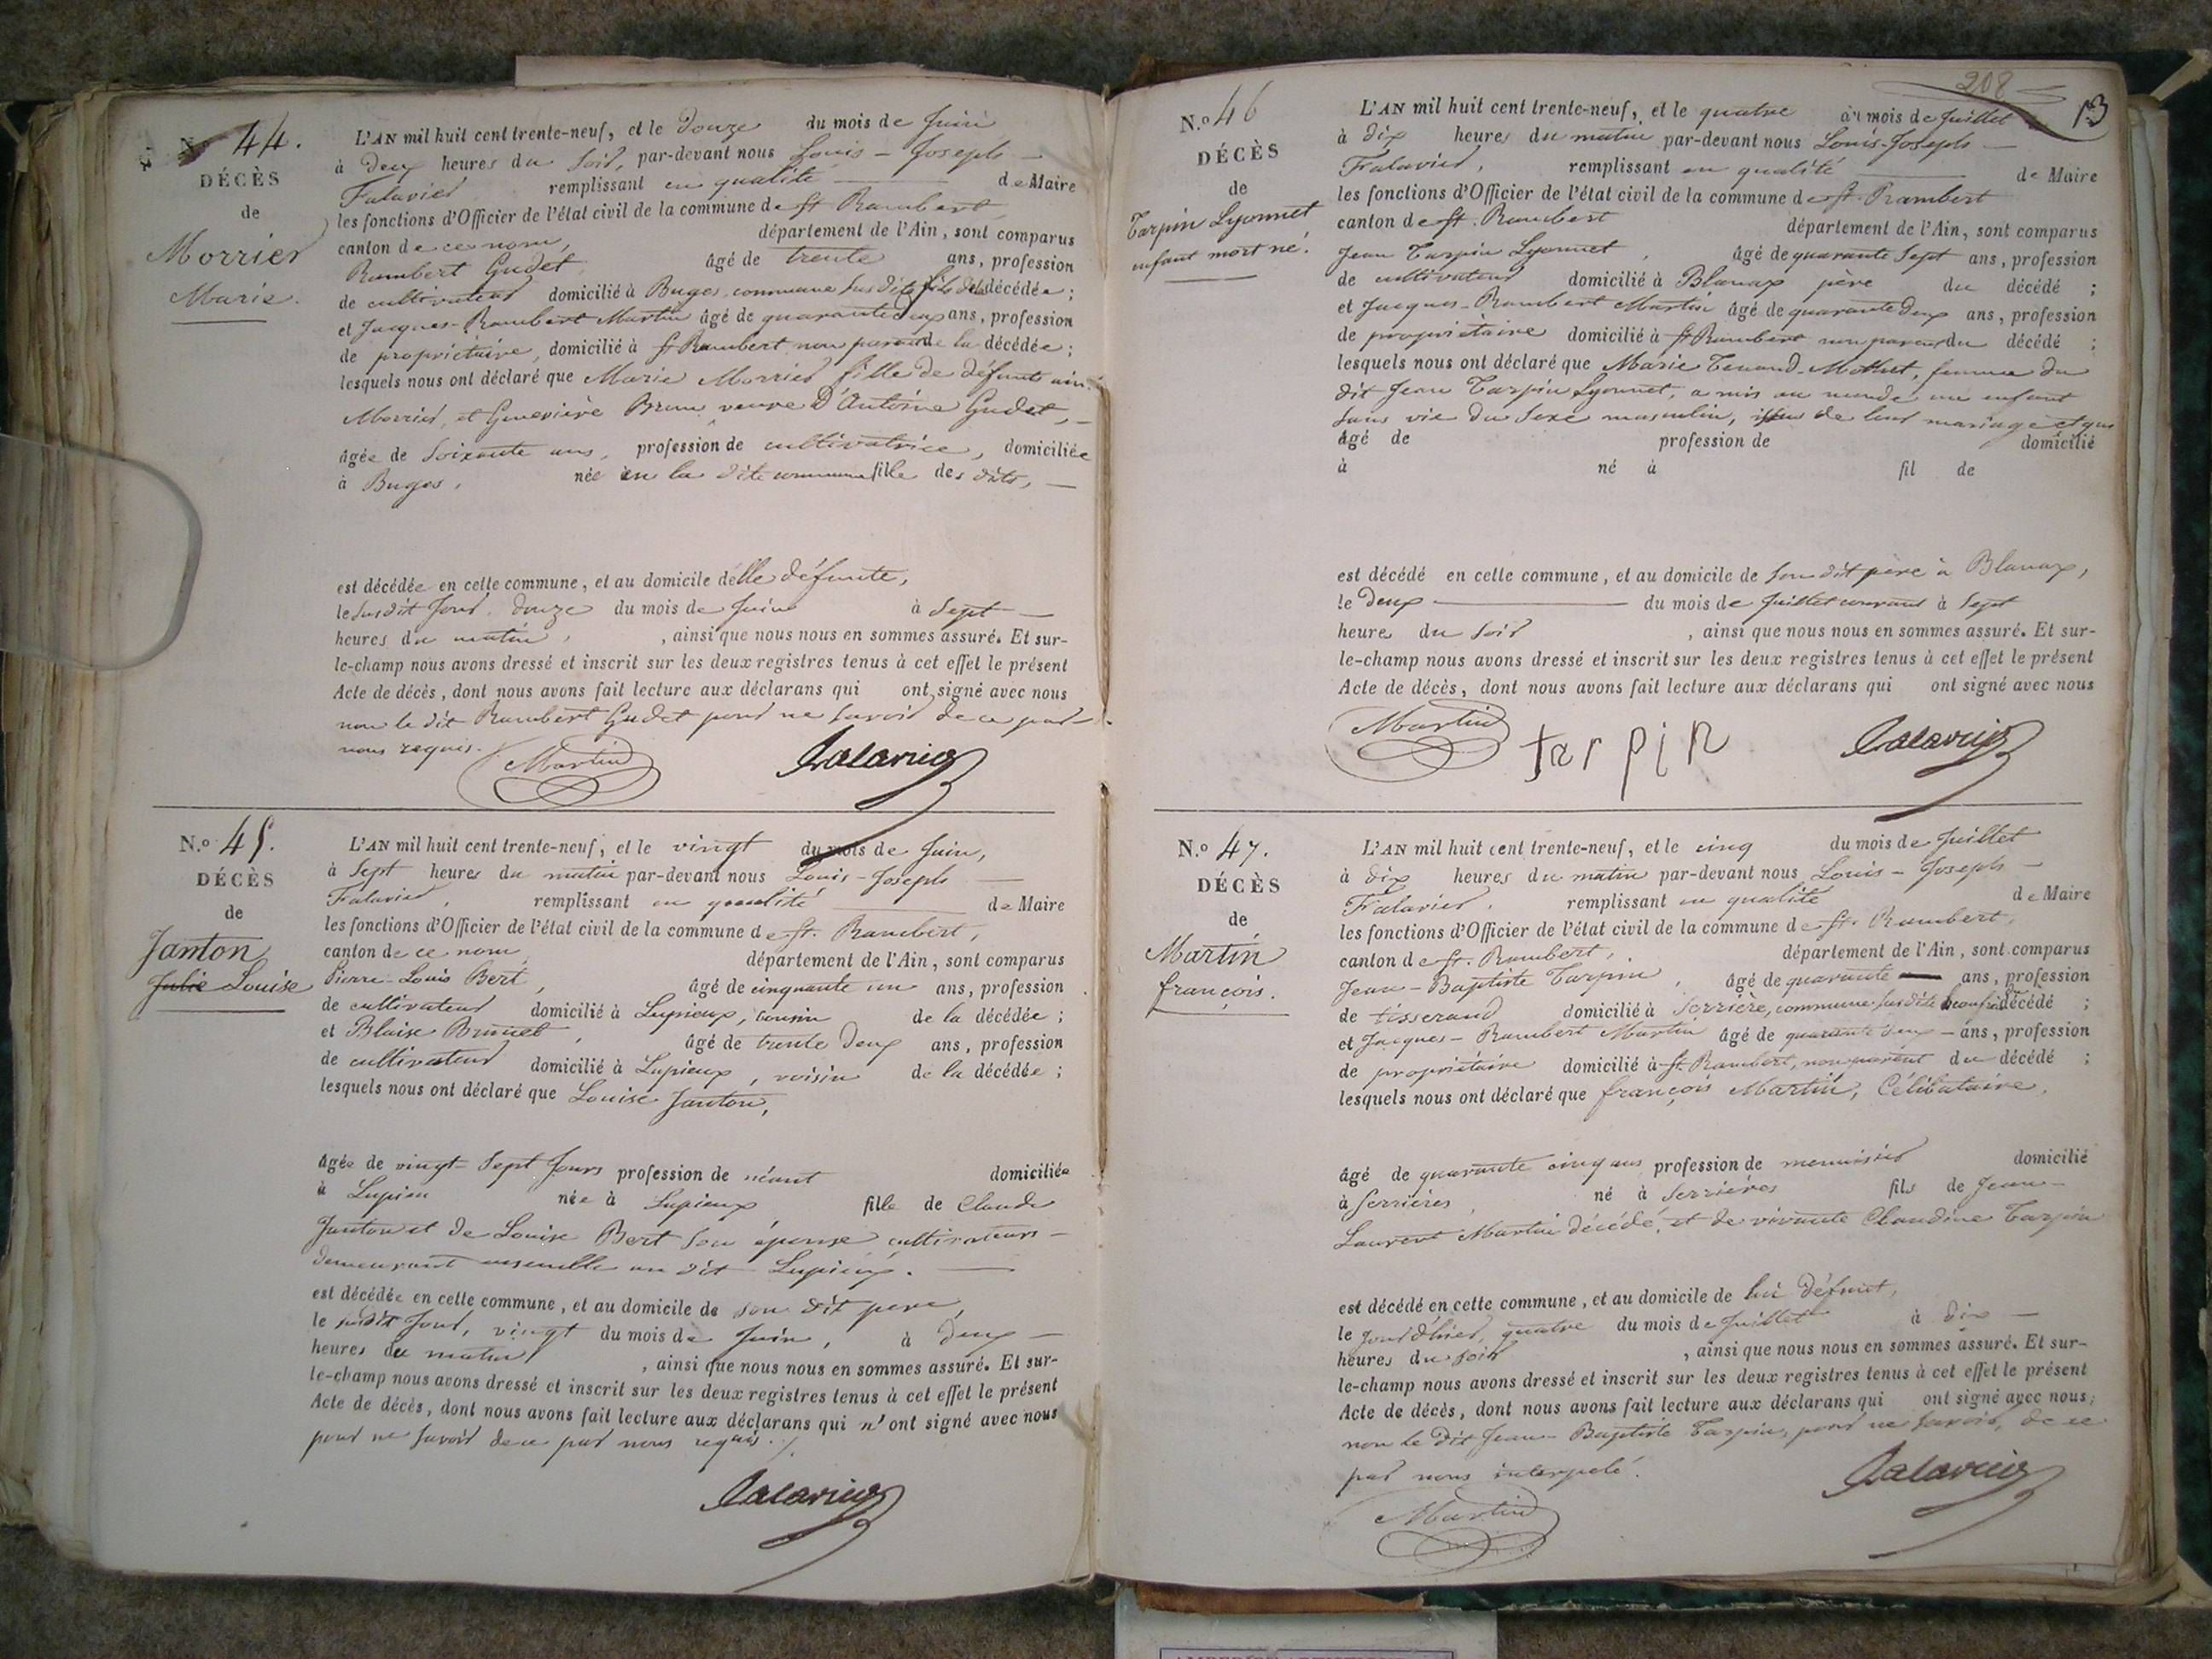 N.o 44.
DÉCÈS
de
Morrier
Marie.
L'AN mil huit cent trente-neuf, et le douze du mois de Juin
à deux heures du soir, par-devant nous Louis - Joseph —
Falavier remplissant en qualité — de Maire
les fonctions d'Officier de l'état civil de la commune de St Rambert
canton de ce nom, département de l'Ain, sont comparus
Rambert Gudet âgé de trente ans, profession
de cultivateur domicilié à Buges, commune susdite fils de la décédée ;
et Jacques-Rambert Martin âgé de quarante deux ans, profession
de propriétaire, domicilié à St Rambert non parent de la décédée ;
lesquels nous ont déclaré que Marie Morrier fille de défunts
Morrier, et Genevière Brun veuve D'Antoine Gudet, —
âgée de soixante ans, profession de cultivatrice, domiciliée
à Buges, née en la dite commune fille des dits, —
est décédée en celle commune, et au domicile d'elle défunte,
le susdit jour, douze du mois de Juin à sept —
heures du matin, , ainsi que nous nous en sommes assuré. Et sur-
le-champ nous avons dressé et inscrit sur les deux registres tenus à cet effet le présent
Acte de décès, dont nous avons fait lecture aux déclarans qui ont signé avec nous
non le dit Rambert Gudet pour ne savoir de ce par
nous requis.
Martin Falavier
N.o 45.
DÉCÈS
de
Janton
Julie Louise
L'AN mil huit cent trente-neuf, et le vingt du mois de Juin,
à sept heures du matin par-devant nous Louis - Joseph —
Falavier, remplissant en qualité — de Maire
les fonctions d'Officier de l'état civil de la commune de St. Rambert,
canton de ce nom, département de l'Ain, sont comparus
Pierre-Louis Bert, âgé de cinquante un ans, profession
de cultivateur domicilié à Lupieux, cousin de la décédée ;
et Blaise Brunet, âgé de trente deux ans, profession
de cultivateur domicilié à Lupieux, voisin de la décédée ;
lesquels nous ont déclaré que Louise Janton,
âgée de vingt-sept jours profession de néant domiciliée
à Lupieu née à Lupieux fille de Claude
Janton et de Louise Bert son épouse cultivateurs —
demeurant ensemble au dit Lupieux. —
est décédée en celle commune, et au domicile de son dit père,
le susdit jour, vingt du mois de Juin, à deux —
heures du matin , ainsi que nous nous en sommes assuré. Et sur-
le-champ nous avons dressé et inscrit sur les deux registres tenus à cet effet le présent
Acte de décès, dont nous avons fait lecture aux déclarans qui n'ont signé avec nous
pour ne savoir de ce par nous requis.
Falavier
208
13
N.o 46
DÉCÈS
de
Tarpin Lyonnet
enfant mort né.
L'AN mil huit cent trente-neuf, et le quatre du mois de Juillet
à dix heures du matin par-devant nous Louis-Joseph —
Falavier, remplissant en qualité — de Maire
les fonctions d'Officier de l'état civil de la commune de St. Rambert
canton de St. Rambert département de l'Ain, sont comparus
Jean Tarpin Lyonnet, âgé de quarante sept ans, profession
de cultivateur domicilié à Blanax père du décédé ;
et Jacques-Rambert Martin âgé de quarante deux ans, profession
de propriétaire domicilié à St Rambert non parent du décédé ;
lesquels nous ont déclaré que Marie Tenand-Mottet, femme du
dit Jean Tarpin Lyonnet, a mis au monde un enfant
sans vie du sexe masculin, issu de leur mariage et qui
âgé de profession de domicilié
à né à fil de
est décédé en celle commune, et au domicile de son dit père à Blanax,
le deux — du mois de Juillet courant à sept
heure du soir , ainsi que nous nous en sommes assuré. Et sur-
le-champ nous avons dressé et inscrit sur les deux registres tenus à cet effet le présent
Acte de décès, dont nous avons fait lecture aux déclarans qui ont signé avec nous
Martin tarpin Falavier
N.o 47.
DÉCÈS
de
Martin
françois.
L'AN mil huit cent trente-neuf, et le cinq du mois de Juillet
à dix heures du matin par-devant nous Louis - Joseph —
Falavier. remplissant en qualité de Maire
les fonctions d'Officier de l'état civil de la commune de St. Rambert,
canton de St. Rambert, département de l'Ain, sont comparus
Jean-Baptiste Tarpin, âgé de quarante — ans, profession
de tisserand domicilié à Serrière, commune susdite beaufrère du décédé ;
et Jacques-Rambert Martin âgé de quarante deux — ans, profession
de propriétaire domicilié à St Rambert, non parent du décédé ;
lesquels nous ont déclaré que françois Martin, Célibataire,
âgé de quarante cinq ans profession de menuisier domicilié
à Serrières, né à Serrières fils de Jean-
Laurent Martin décédé, et de vivante Claudine Tarpin
est décédé en cette commune, et au domicile de lui défunt,
le jour d'hier, quatre du mois de Juillet à dix —
heures du soir , ainsi que nous nous en sommes assuré. Et sur-
le-champ nous avons dressé et inscrit sur les deux registres tenus à cet effet le présent
Acte de décès, dont nous avons fait lecture aux déclarans qui ont signé avec nous;
non le dit Jean-Baptiste Tarpin, pour ne savoir, de ce
par nous interpelé.
Martin Falavier